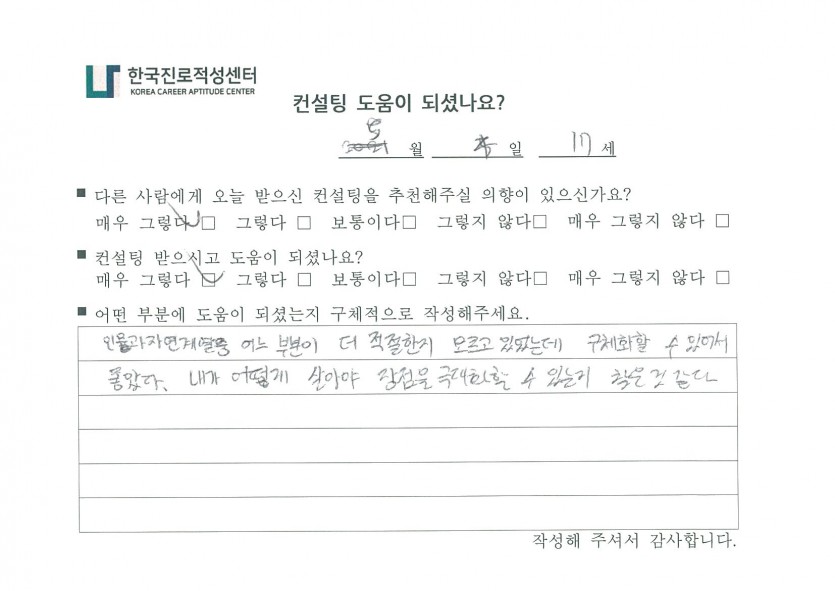 한국진로적성센터
KOREA CAREER APTITUDE CENTER
컨설팅 도움이 되셨나요?
5월 일 17세
■ 다른 사람에게 오늘 받으신 컨설팅을 추천해주실 의향이 있으신가요?
매우 그렇다 □ 그렇다 □ 보통이다□ 그렇지 않다□ 매우 그렇지 않다 □
■ 컨설팅 받으시고 도움이 되셨나요?
매우 그렇다 □ 그렇다 □ 보통이다□ 그렇지 않다□ 매우 그렇지 않다 □
■ 어떤 부분에 도움이 되셨는지 구체적으로 작성해주세요.
자연계열중 어느 부분이 더 적절한지 모르고 있었는데 구체화할 수 있어서
좋았다. 내가 어떻게 살아야 장점을 극대화할 수 있는지 찾은 것 같다
작성해 주셔서 감사합니다.